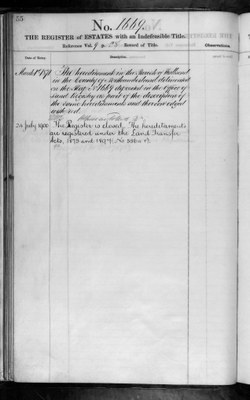 55
No. 1669
THE REGISTER of ESTATES with an Indefeasible Title.
Reference Vol. 9 p. Record of Title.
Observations.
Date of Entry.
Description.
March 1870 The hereditaments in the Parish of
in the County of Northumberland delineated
on the Map No 1669 deposited in the Office of
Land Registry as part of the description of
the same hereditaments and thereon edged
with red.
July 1900 The Register is closed. The hereditaments
are registered under the Land Transfer
Acts, 1875 and 1897: No